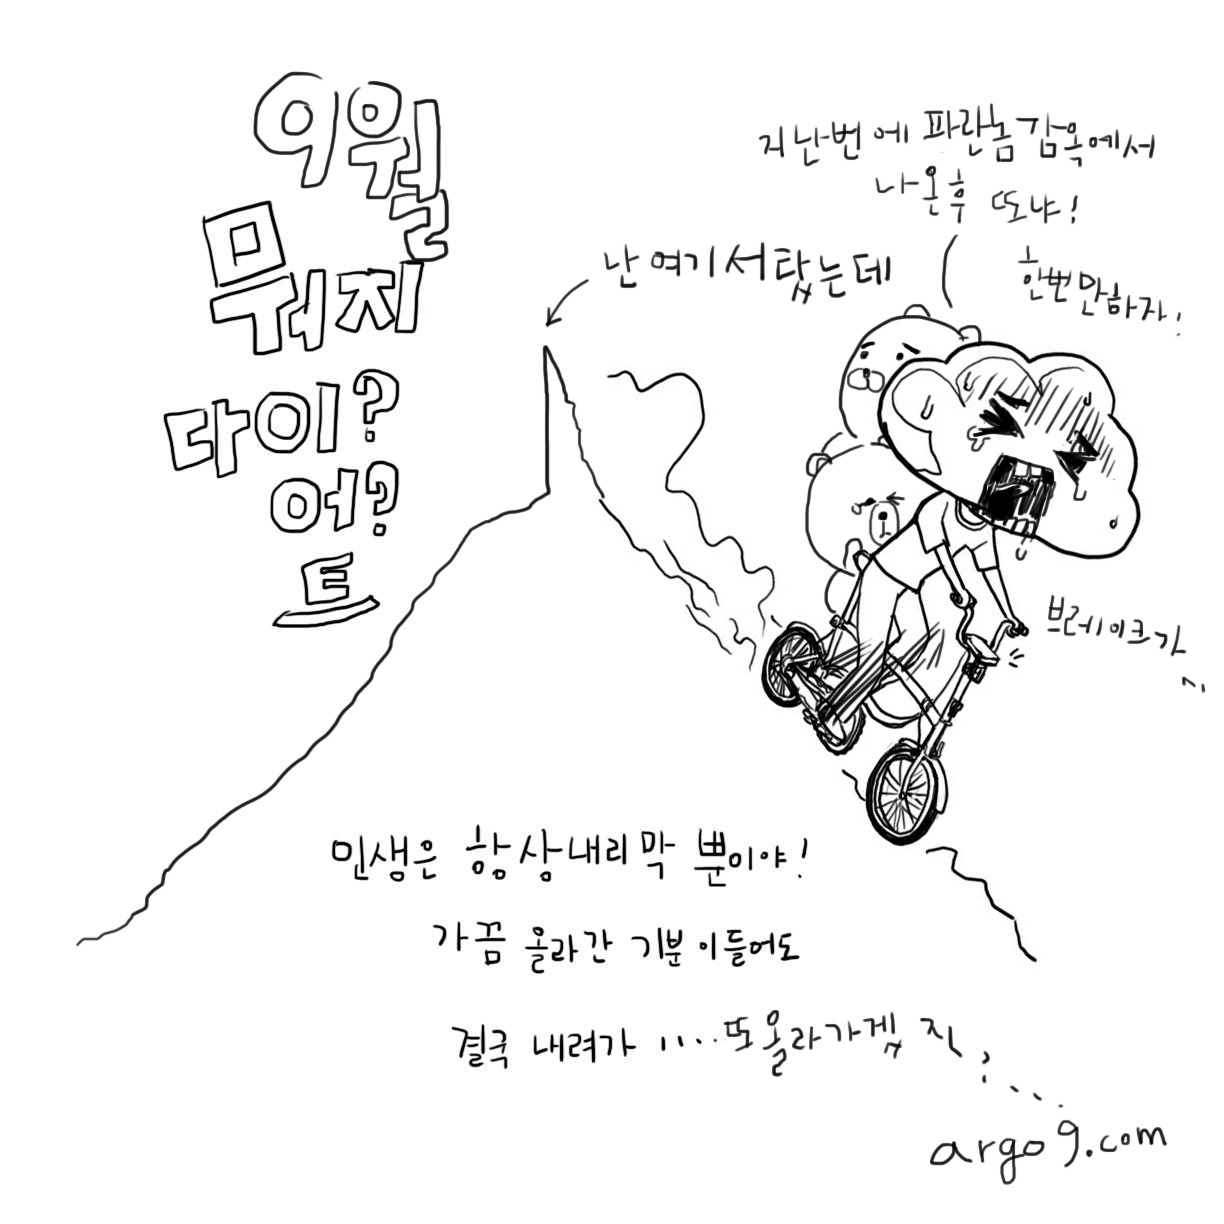 9월
뭐지
다이?
어?
트
지난번에 파란놈감옥에서
나온후 또냐!
난 여기서탔는데
한번만하자!
브레이크가
인생은 항상내리막 뿐이야!
가끔 올라간 기분이들어도
결국 내려가 .... 또올라가겠지?....
argo9.com